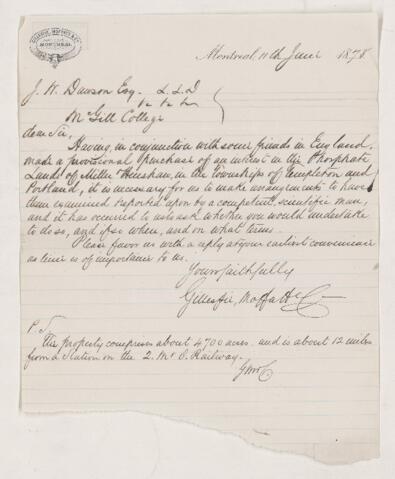 GILLESPIE, MOFFATT & CO.
MONTREAL
Montreal, 11th June 1878
J. W. Dawson Esq. L.L.D
&c &c &c
McGill College
dear Sir,
Having, in conjunction with some friends in England,
made a provisional purchase of an interest in the Phosphate
Lands of Miller & Henshaw, in the townships of Templeton and
Portland, it is necessary for us to make arrangements to have
them examined & reported upon by a competent, scientific man,
and it has occurred to us to ask whether you would undertake
to do so, and if so when, and on what terms.
Please favor us with a reply at your earliest convenience
as time is of importance to us.
Yours faithfully
Gillespie, Moffatt & Co
P.S.
The property comprises about 4700 acres. and is about 12 miles
from a Station on the Q. M. & O. Railway.
GM&C